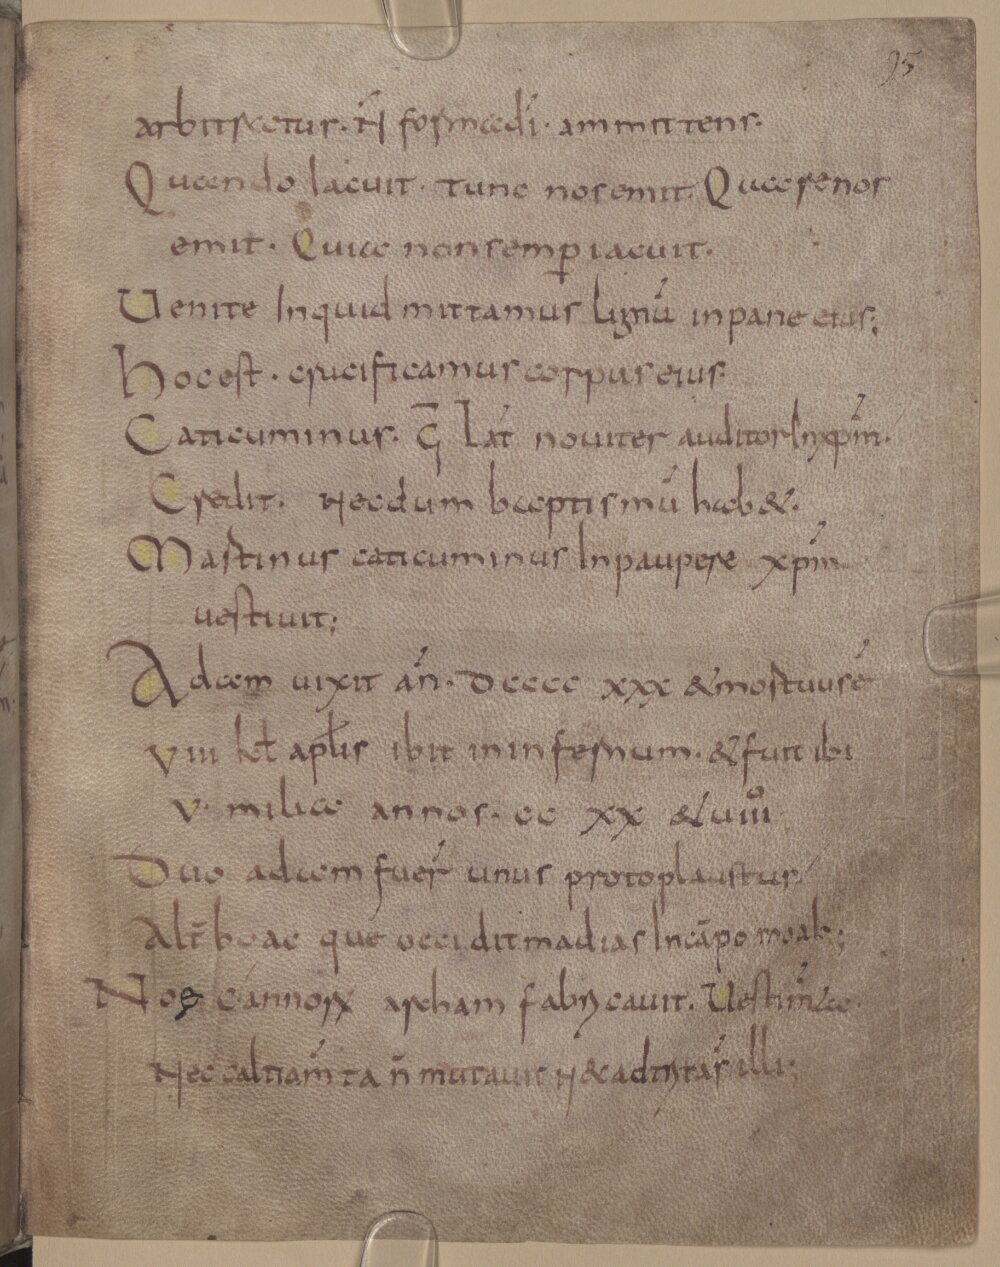 95
arbitretur. n̄ formā di. ammittens.
Quando iacuit. tunc nos emit. Quare nos
emit. Quia non semꝑ iacuit.
Uenite Inquid mittamus lignū in pane eius;
hoc est. crucificamus corpus eius.
Caticuminus. Ḡ Lat̄ nouiter auditor In xp̄m.
Credit. Necdum baptismū hab&.
Martinus caticuminus In paupere xp̄m
uestiuit;
Adam uixit an̄. Dcccc xxx & mortuus ē
viii kƚ aprƚis ibit in infernum. & fuit ibi
v. milia annos. cc xx & uiiii
Duo adam fuer̄ unus protoplaustur.
Alt̄ boac que occidit madias In cāpo moab;
Noe c annos archam fabricauit. Uestim̄ta
Nec caltiam̄ta n̄ mutauit N & adtritas illi;